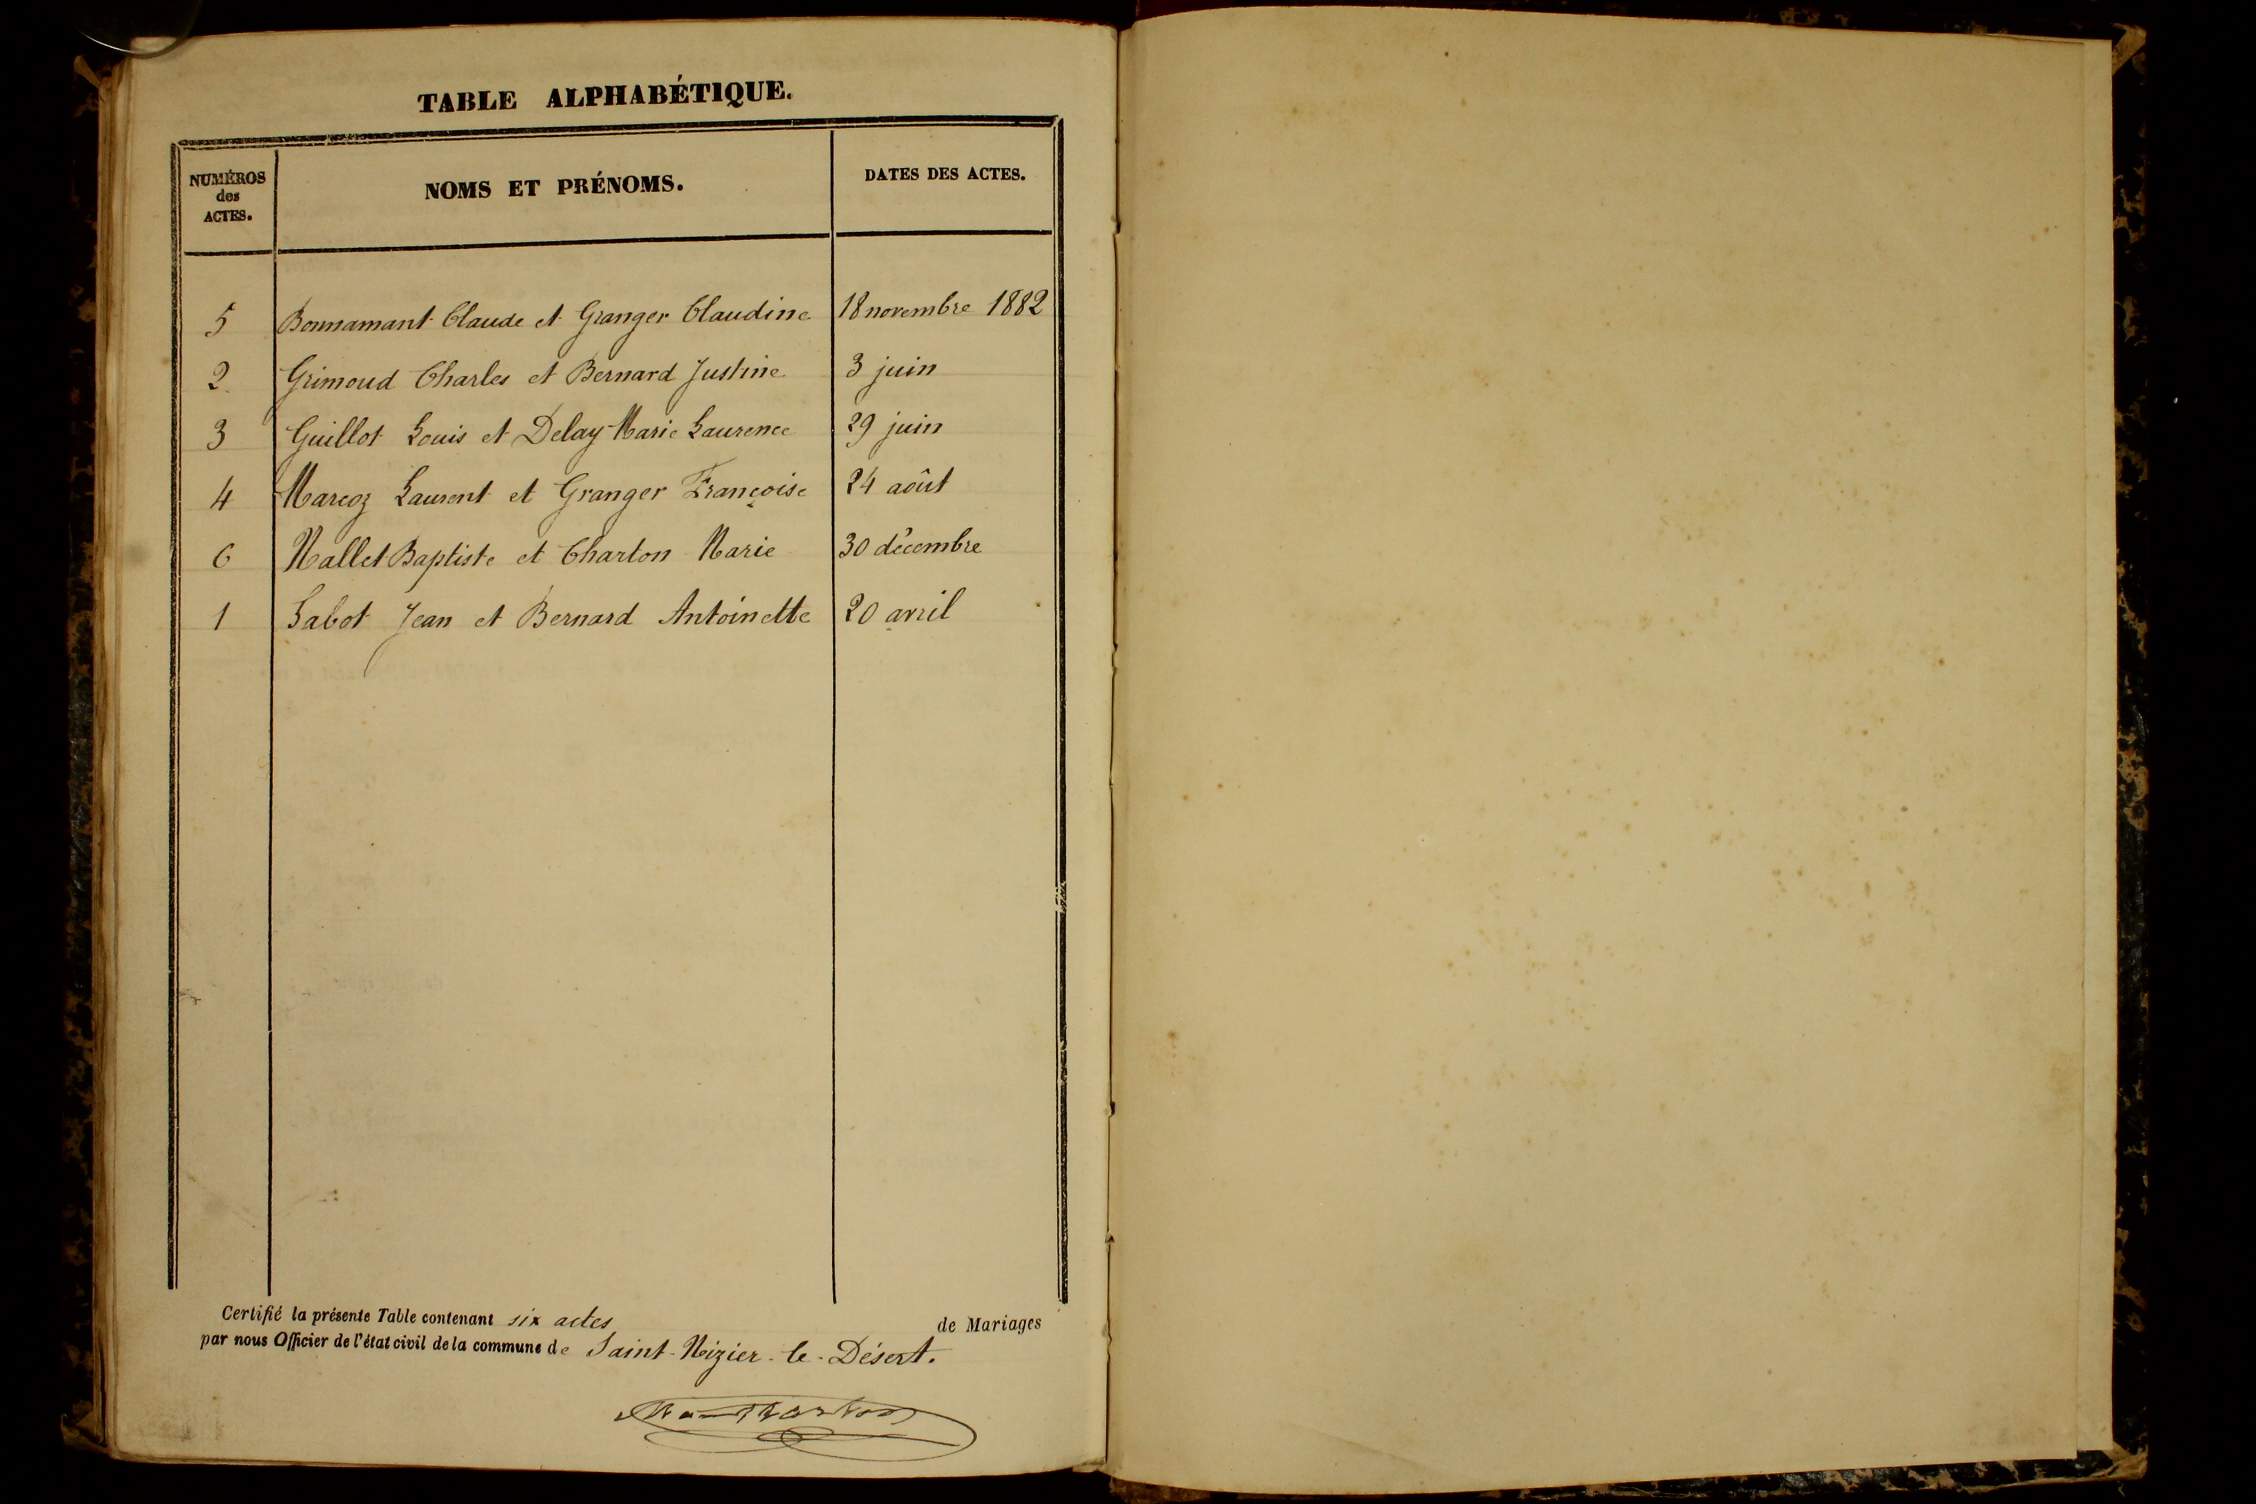 TABLE ALPHABÉTIQUE.
NUMÉROS
des
ACTES.
NOMS ET PRÉNOMS.
DATES DES ACTES.
5 Bonnamant Claude et Granger Claudine 18 novembre 1882
2 Grimoud Charles et Bernard Justine 3 juin
3 Guillot Louis et Delay Marie Laurence 29 juin
4 Marcoz Laurent et Granger Françoise 24 août
6 Nallet Baptiste et Charton Marie 30 décembre
1 Sabot Jean et Bernard Antoinette 20 avril
Certifié la présente Table contenant six actes de Mariages
par nous Officier de l'état civil de la commune de Saint-Nizier-le-Désert.